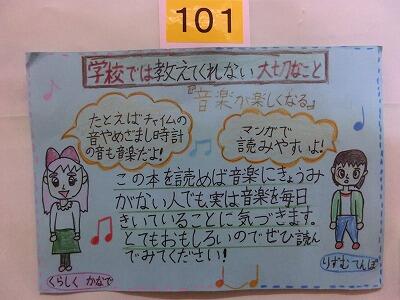 101
学校では教えてくれない大切なこと
『音楽が楽しくなる』
たとえばチャイムの
音やめざまし時計
の音も音楽だよ!
マンガで
読みやすいよ!
この本を読めば音楽にきょうみ
がない人でも実は音楽を毎日
きいていることに気づきます。
とてもおもしろいのでぜひ読ん
でみてください!
くらしく かなで
りずむ てんぽ